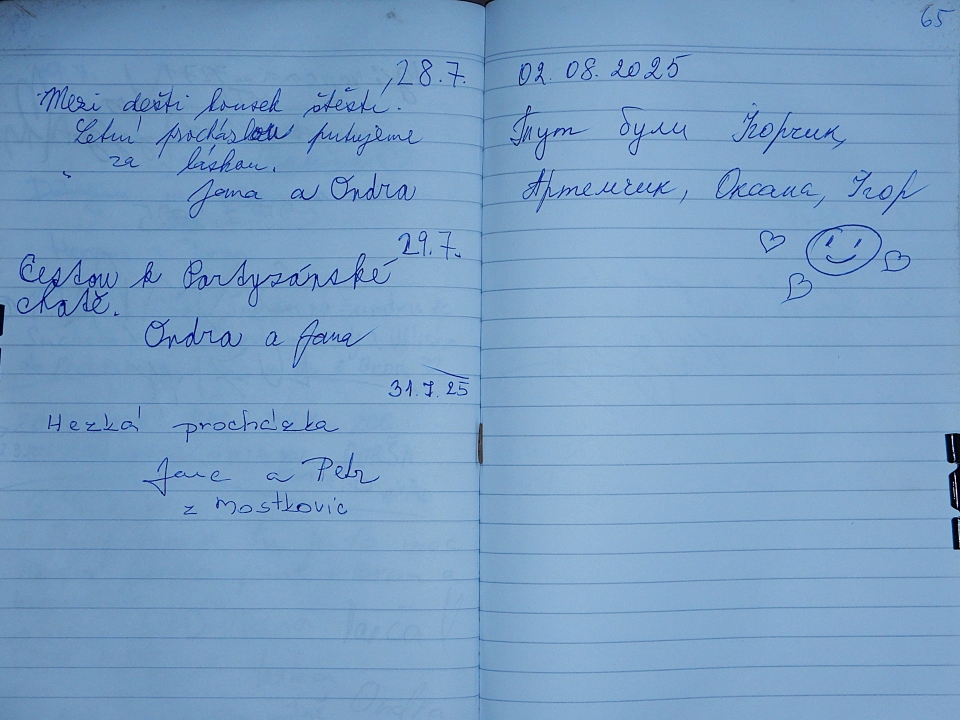 28.7.
Mezi dešti kousek štěstí.
Letní procházkou putujeme
za láskou.
Jana a Ondra
29.7.
Cestou k Partyzánské
chatě.
Ondra a Jana
31.7.25
Hezká procházka
Jana a Petr
z Mostkovic
65
02.08.2025
Тут були Ігорчик,
Артемчик, Оксана, Ігор